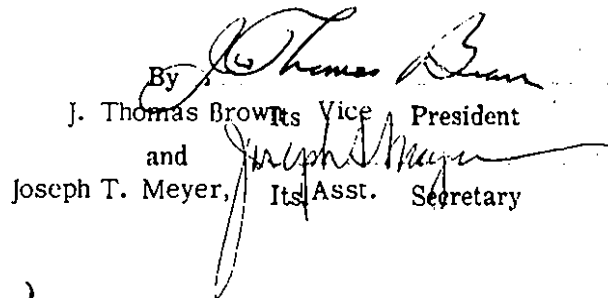 By J. Thomas Brown
J. Thomas Brown Its Vice President
and Joseph T. Meyer
Joseph T. Meyer, Its Asst. Secretary
)